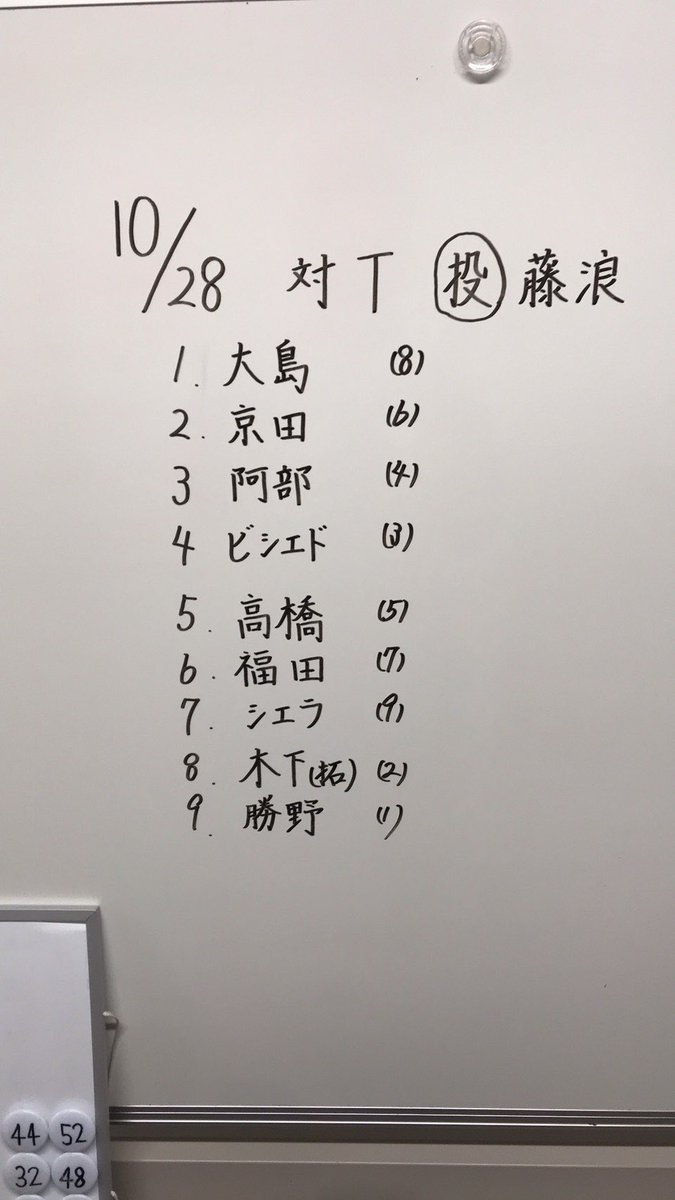 10/28 対T 投 藤浪
1. 大島 (8)
2. 京田 (6)
3 阿部 (4)
4 ビシエド (3)
5. 高橋 (5)
6. 福田 (7)
7. シエラ (9)
8. 木下(拓) (2)
9. 勝野 (1)
44 52
32 48